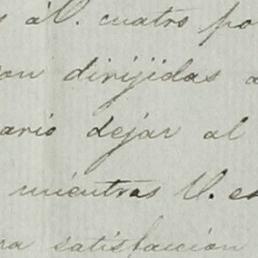 s á V. cuatro po
on dirijidas a
ario dejar al
mientras V. es
na satisfaccion